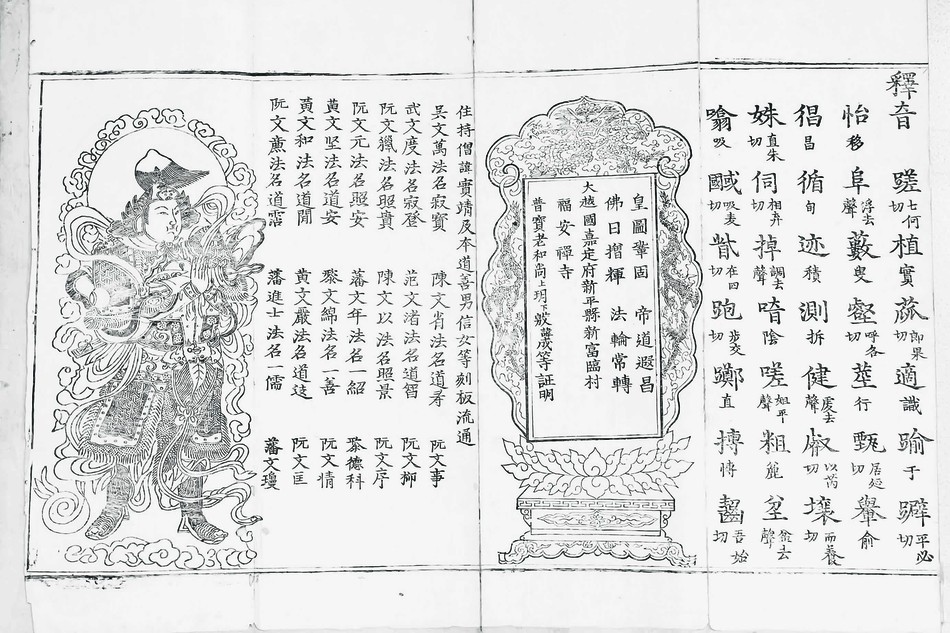 釋音
蹉七何切 植實 蓏郎果切 適識 踰于 躃平必切
怡移 阜浮去聲 藪叟 壑呼各切 莖行 甄居延切 轝俞
猖昌 循旬 迹積 測拆 健處去聲 㕡以芮切 壤而養切
姝直朱切 伺相弄切 掉調去聲 喑陰 嗟姐平聲 粗麁 坌盆去聲
噏吸 馘國吸麦切 眥在四切 跑步交切 躑直 摶慱 齧吾始切
皇圖鞏固 帝道遐昌
佛日增輝 法輪常轉
大越國嘉定府新平縣新富臨村
福安禪寺
普寶老和尚上玥下 等証明
住持僧諱實靖及本道善男信女等刻板流通
吳文萬法名寂實 陳文肖法名道壽 阮文事
武文度法名寂登 范文渚法名道智 阮文柳
阮文獵法名照貴 陳文以法名照景 阮文序
阮文元法名照安 藩文年法名一紹 黎德科
黄文坚法名道安 黎文綿法名一善 阮文情
黃文和法名道開 黃文嚴法名道遠 阮文匡
阮文熏法名道 藩進士法名一儒 藩文瓊